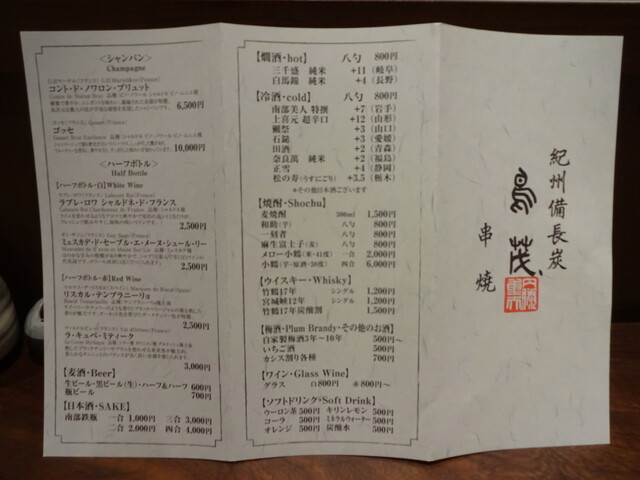 <シャンパン>
Champagne
コント・ド・ノワロン・ブリュット
6,500円
ゴッセ
10,000円
<ハーフボトル>
Half Bottle
【ハーフボトル・白】White Wine
ラブレ・ロワ シャルドネ・ド・フランス
2,500円
ミュスカデ・ド・セーブル・エ・メーヌ・シュール・リー
2,500円
【ハーフボトル・赤】Red Wine
リスカル・テンプラニーリョ
2,500円
ラ・キュベ・ミティーク
3,000円
【麦酒・Beer】
生ビール・黒ビール(生)・ハーフ&ハーフ 600円
瓶ビール 700円
【日本酒・SAKE】
南部鉄瓶 一合 1,000円 三合 3,000円
二合 2,000円 四合 4,000円
【燗酒・hot】 八勺 800円
三千盛 純米 +11 (岐阜)
白馬錦 純米 +4 (長野)
【冷酒・cold】 八勺 800円
南部美人 特撰 +7 (岩手)
上喜元 超辛口 +12 (山形)
獺祭 +3 (山口)
石鎚 +3 (愛媛)
田酒 +2 (青森)
奈良萬 純米 +2 (福島)
正雪 +4 (静岡)
松の寿(うすにごり) +3.5 (栃木)
*その他日本酒ございます
【焼酎・Shochu】
麦焼酎 300ml 1,500円
和助(芋) 八勺 800円
一刻者 八勺 800円
麻生富士子(麦) 八勺 800円
メロー小鶴(米・41度) 一合 2,000円
小鶴(芋・原酒・50度) 四合 6,000円
【ウイスキー・Whisky】
竹鶴17年 シングル 1,200円
宮城峡12年 シングル 1,200円
竹鶴17年炭酸割 1,500円
【梅酒・Plum Brandy・その他のお酒】
自家製梅酒3年~10年 500円~
いちご酒 500円
カシス割り各種 700円
【ワイン・Glass Wine】
グラス 白800円 赤800円~
【ソフトドリンク・Soft Drink】
ウーロン茶 500円 キリンレモン 500円
コーラ 500円 ミネラルウォーター 500円
オレンジ 500円 炭酸水 500円
紀州備長炭
鳥茂
串焼